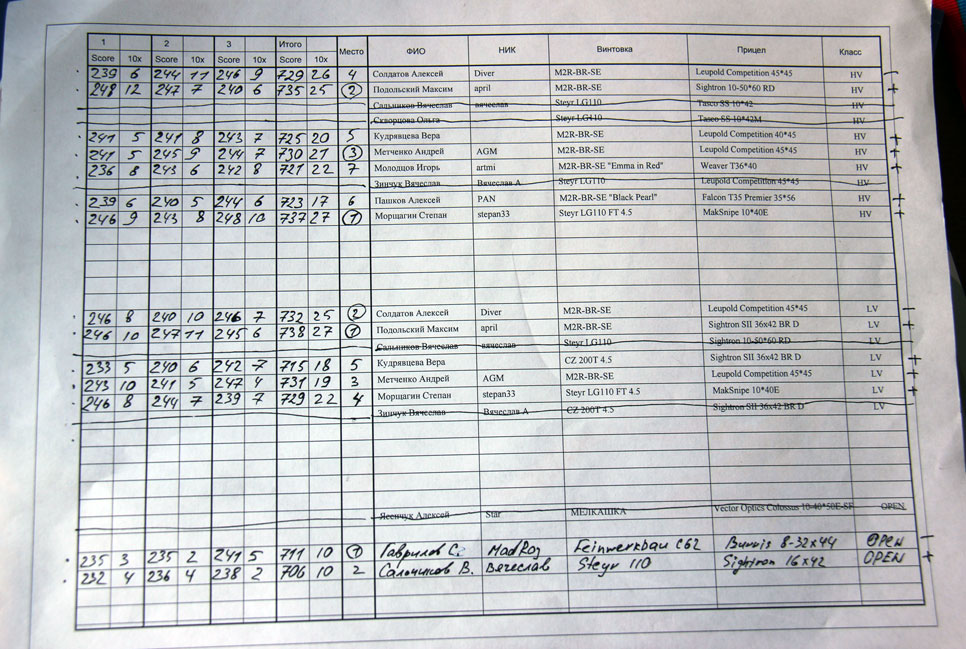 1 2 3 Итого Место ФИО НИК Винтовка Прицел Класс
Score 10x Score 10x Score 10x Score 10x
239 6 244 11 246 9 729 26 4 Солдатов Алексей Diver M2R-BR-SE Leupold Competition 45*45 HV —
248 12 247 7 240 6 735 25 2 Подольский Максим april M2R-BR-SE Sightron 10-50*60 RD HV +
Сальников Вячеслав вячеслав Steyr LG110 Tasco SS 10*42 HV
Скворцова Ольга Steyr LG110 Tasco SS 10*42M HV
241 5 241 8 243 7 725 20 5 Кудрявцева Вера M2R-BR-SE Leupold Competition 40*45 HV +
241 5 245 9 244 7 730 21 3 Метченко Андрей AGM M2R-BR-SE Leupold Competition 45*45 HV +
236 8 243 6 242 8 721 22 7 Молодцов Игорь artmi M2R-BR-SE "Emma in Red" Weaver T36*40 HV +
Зинчук Вячеслав Вячеслав А Steyr LG110 Leupold Competition 45*45 HV
239 6 240 5 244 6 723 17 6 Пашков Алексей PAN M2R-BR-SE "Black Pearl" Falcon T35 Premier 35*56 HV +
246 9 243 8 248 10 737 27 1 Морщагин Степан stepan33 Steyr LG110 FT 4.5 MakSnipe 10*40E HV +
246 8 240 10 246 7 732 25 2 Солдатов Алексей Diver M2R-BR-SE Leupold Competition 45*45 LV +
246 10 247 11 245 6 738 27 1 Подольский Максим april M2R-BR-SE Sightron SII 36x42 BR D LV +
Сальников Вячеслав вячеслав Steyr LG110 Sightron 10-50*60 RD LV
233 5 240 6 242 7 715 18 5 Кудрявцева Вера CZ 200T 4.5 Sightron SII 36x42 BR D LV +
243 10 241 5 247 4 731 19 3 Метченко Андрей AGM M2R-BR-SE Leupold Competition 45*45 LV +
246 8 244 7 239 7 729 22 4 Морщагин Степан stepan33 Steyr LG110 FT 4.5 MakSnipe 10*40E LV +
Зинчук Вячеслав Вячеслав А CZ 200T 4.5 Sightron SII 36x42 BR D LV
Ясенчук Алексей Star МЕЛКАШКА Vector Optics Colossus 10-40*50E-SF OPEN
235 3 235 2 241 5 711 10 1 Гаврилов С. MadRoj Feinwerkbau C62 Burris 8-32x44 OPEN —
232 4 236 4 238 2 706 10 2 Сальников В. Вячеслав Steyr 110 Sightron 16x42 OPEN +